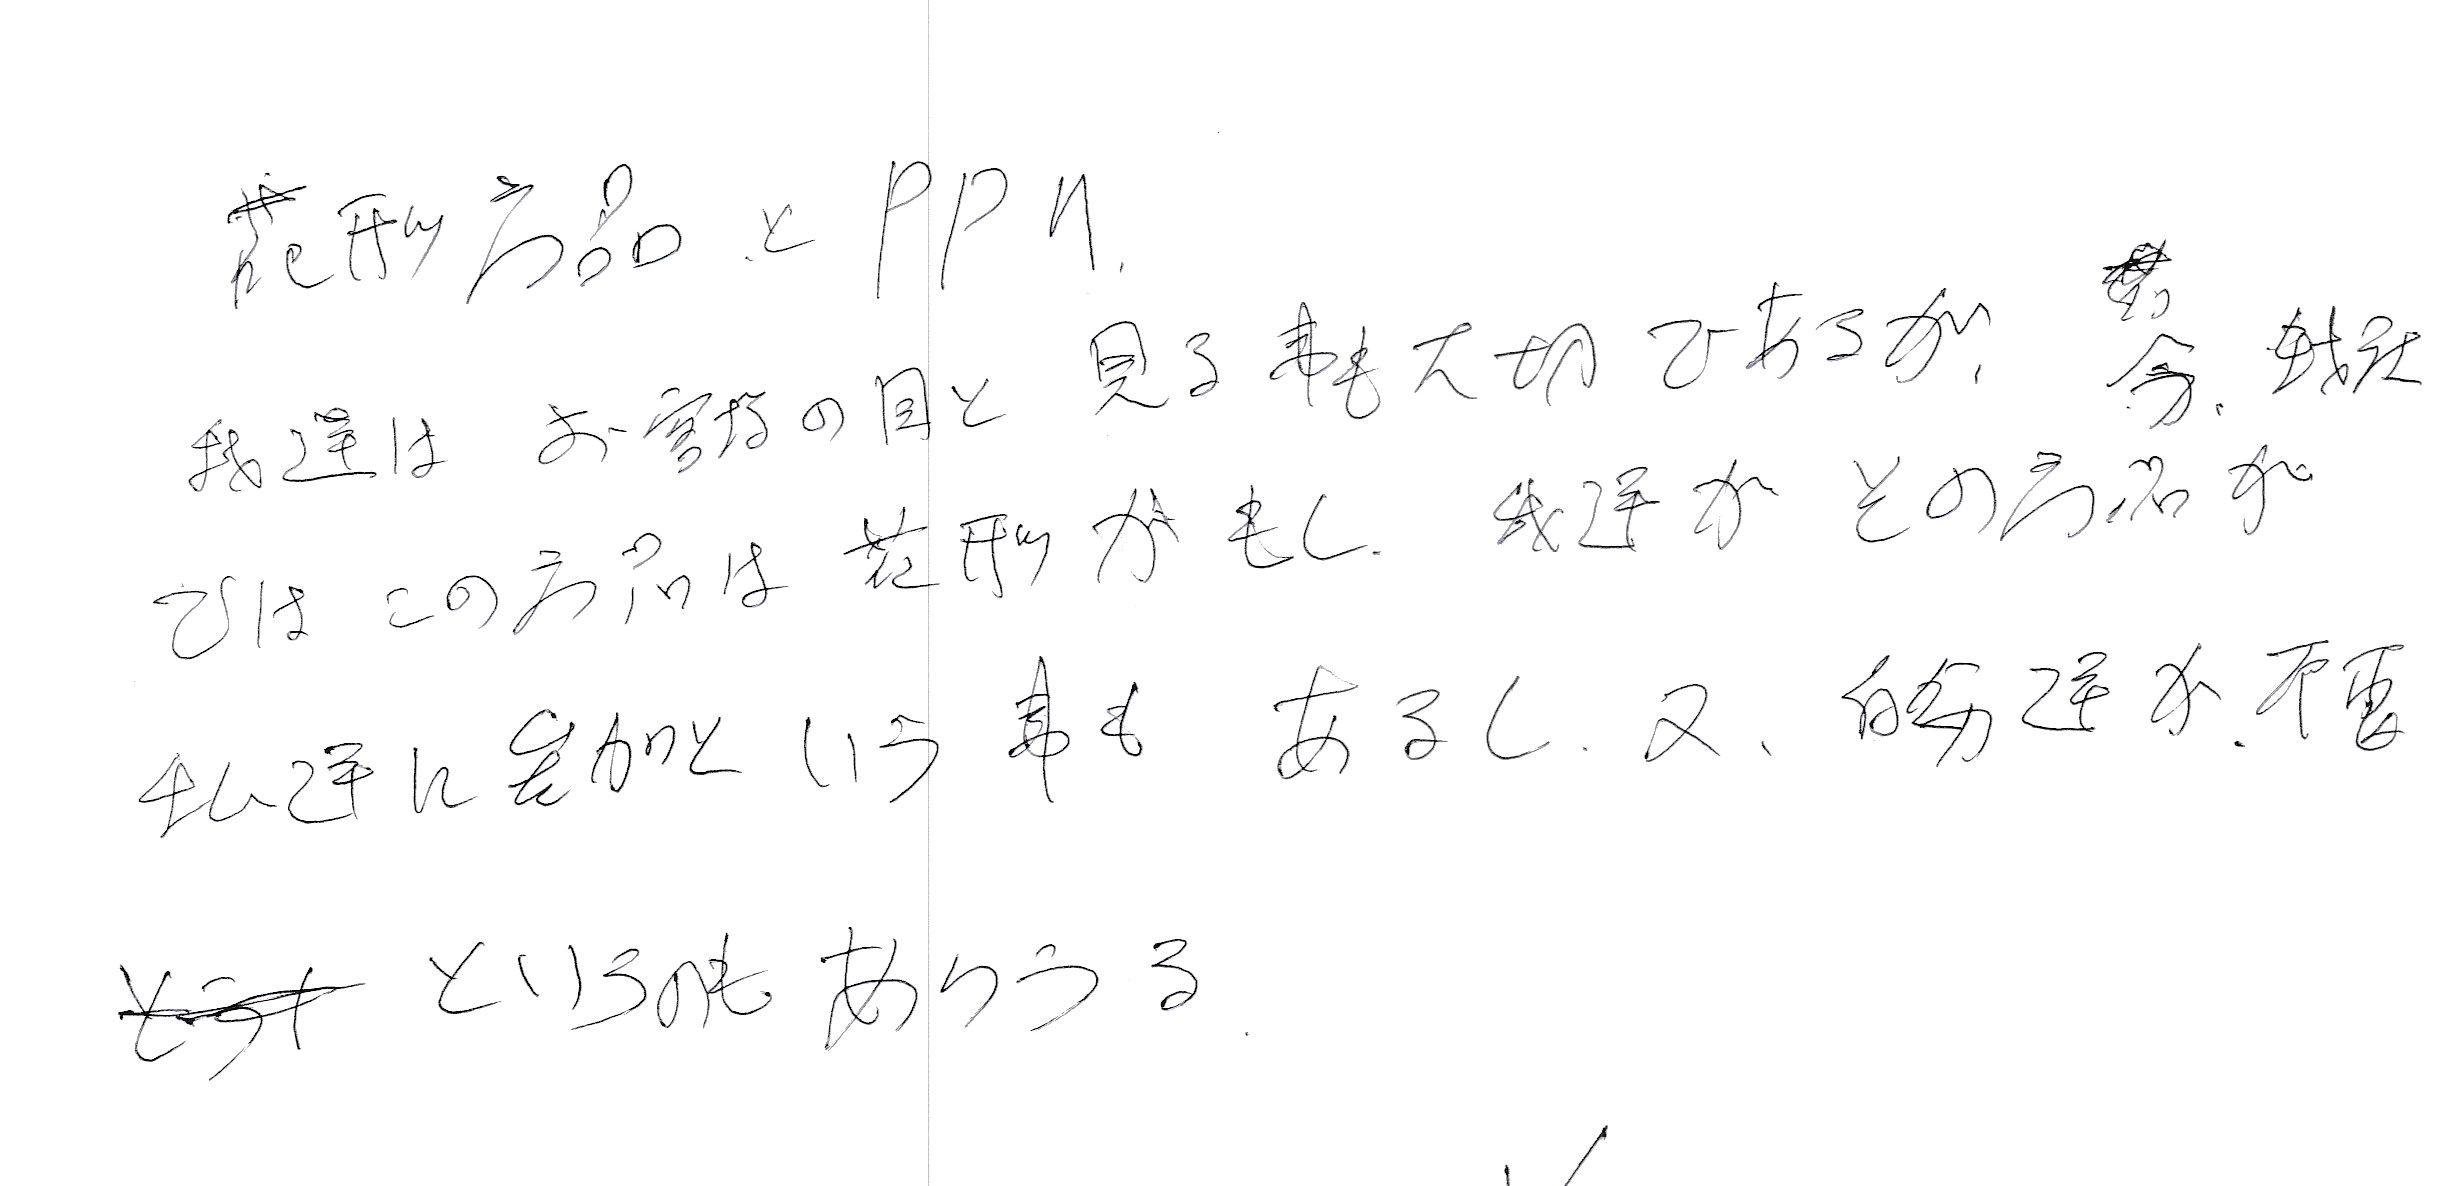 花形商品とPPM.
我達はお客様の目と見る事も大切であるが、今、我社
ではこの商品は花形がもし、我達がその商品が
私達に参加という事もあるし、又、自分達が、不要
というのもありうる.